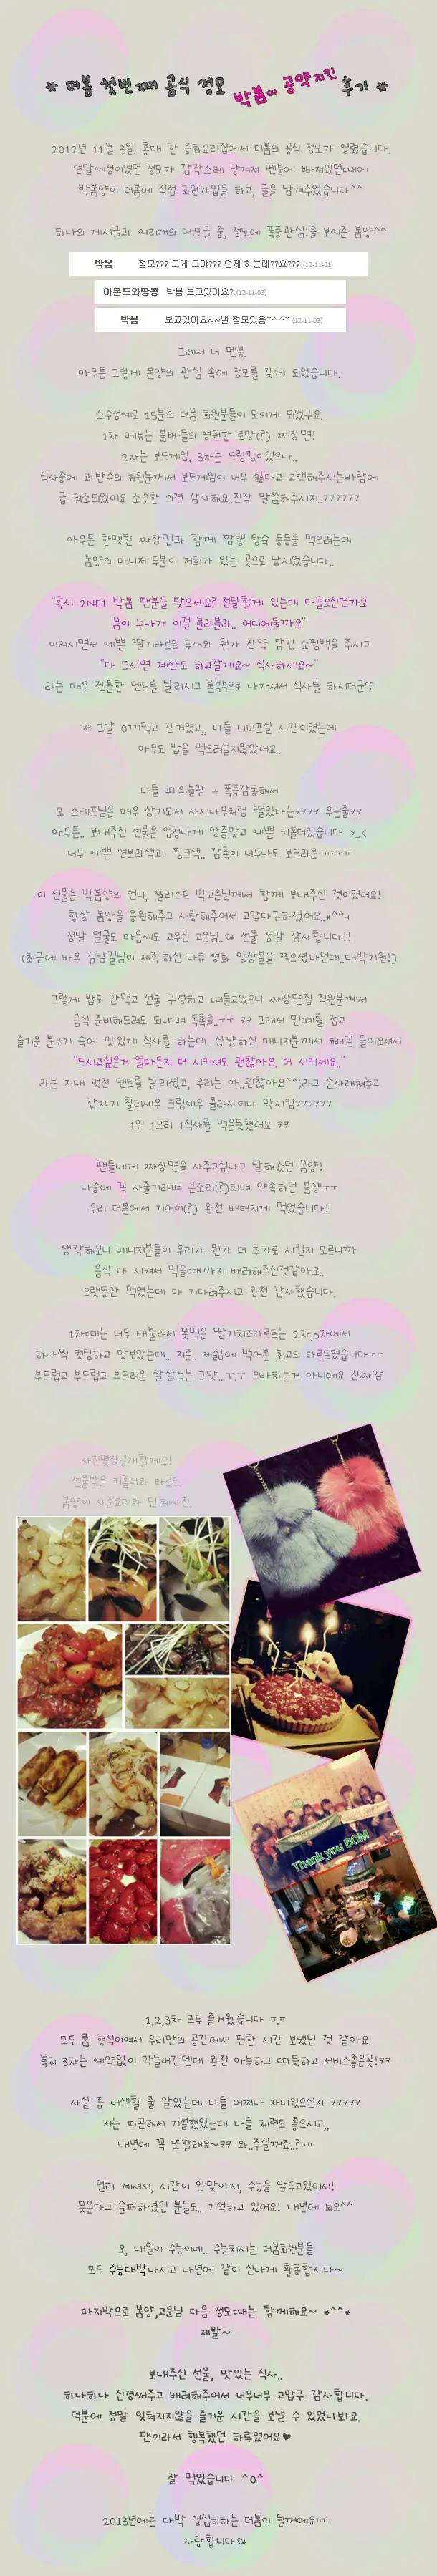 * 더봄 첫번째 공식 정모 박봄이 공약지킨 후기 *
2012년 11월 3일. 홍대 한 중화요리집에서 더봄의 공식 정모가 열렸습니다.
연말예정이였던 정모가 갑작스레 당겨져 멘붕에 빠져있던때에
박봄양이 더봄에 직접 회원가입을 하고, 글을 남겨주었습니다^^
하나의 게시글과 여러개의 메모글 중, 정모에 폭풍관심!을 보여준 봄양^^
박봄 정모??? 그게 모야??? 언제 하는데??요??? (12-11-01)
마몬드와땅콩 박봄 보고있어요? (12-11-03)
박봄 보고있어요~~낼 정모있음*^^* (12-11-03)
그래서 더 멘붕.
아무튼 그렇게 봄양의 관심 속에 정모를 갖게 되었습니다.
소수정예로 15분의 더봄 회원분들이 모이게 되었구요.
1차 메뉴는 봄빠들의 영원한 로망(?) 짜장면!
2차는 보드게임, 3차는 드링킹이였으나..
식사중에 과반수의 회원분께서 보드게임이 너무 싫다고 고백해주시는바람에
급 취소되었어요 소중한 의견 감사해요..진작 말씀해주시지..ㅋㅋㅋㅋㅋㅋ
아무튼 한맺힌 짜장면과 함께 짬뽕 탕슉 등등을 먹으려는데
봄양의 매니저 두분이 저희가 있는 곳으로 납시었습니다..
"혹시 2NE1 박봄 팬분들 맞으세요? 전달할게 있는데 다들오신건가요
봄이 누나가 이걸 블라블라.. 어디에둘까요"
이러시면서 예쁜 딸기타르트 두개와 뭔가 잔뜩 담긴 쇼핑백을 주시고
"다 드시면 계산도 하고갈게요~ 식사하세요~"
라는 매우 젠틀한 멘트를 날리시고 룸밖으로 나가셔서 식사를 하시더군영
저 그날 0끼먹고 간거였고,, 다들 배고프실 시간이였는데
아무도 밥을 먹으려들지않았어요..
다들 파워놀람 + 폭풍감동해서
모 스태프님은 매우 상기되서 사시나무처럼 떨었다는ㅋㅋㅋㅋ 우는줄ㅋㅋ
아무튼.. 보내주신 선물은 엄청나게 앙증맞고 예쁜 키홀더였습니다 >_<
너무 예쁜 연보라색과 핑크색.. 감촉이 너무나도 보드라운 ㅠㅠㅠㅠ
이 선물은 박봄양의 언니, 첼리스트 박고운님께서 함께 보내주신 것이였어요!
항상 봄양을 응원해주고 사랑해주어서 고맙다구하셨어요..*^^*
정말 얼굴도 마음씨도 고우신 고운님..♡ 선물 정말 감사합니다!!
(최근에 배우 김남길님이 제작하신 다큐 영화 앙상블을 찍으셨다던데..대박기원!)
그렇게 밥도 안먹고 선물 구경하고 떠들고있으니 짜장면집 직원분께서
음식 준비해드려도 되냐며 독촉을..ㅜㅜ ㅋㅋ 그래서 민폐를 접고
즐거운 분위기 속에 맛있게 식사를 하는데, 상냥하신 매니저분께서 빼꼼 들어오셔서
"드시고싶은거 얼마든지 더 시키셔도 괜찮아요. 더 시키세요.."
라는 지대 멋진 멘트를 날리셨고, 우리는 아..괜찮아요^^;라고 손사래쳐놓고
갑자기 칠리새우 크림새우 콜라사이다 막시킴ㅋㅋㅋㅋㅋㅋ
1인 1요리 1식사를 먹은듯했어요 ㅋㅋ
팬들에게 짜장면을 사주고싶다고 말해왔던 봄양!
나중에 꼭 사줄거라며 큰소리(?)치며 약속하던 봄양ㅜㅜ
우리 더봄에서 기어이(?) 완전 배터지게 먹었습니다!
생각해보니 매니저분들이 우리가 뭔가 더 추가로 시킬지 모르니까
음식 다 시켜서 먹을때까지 배려해주신것같아요..
오랫동안 먹었는데 다 기다려주시고 완전 감사했습니다.
1차때는 너무 배불러서 못먹은 딸기치즈타르트는 2차,3차에서
하나씩 컷팅하고 맛보았는데.. 지존.. 제삶에 먹어본 최고의 타르트였습니다ㅜㅜ
부드럽고 부드럽고 부드러운 살살녹는 그맛...ㅜ.ㅜ 오바하는거 아니에요 진짜얌
사진몇장공개할게요!
선물받은 키홀더와 타르트
봄양이 사준요리와 단체사진.
Thank you BOM
1,2,3차 모두 즐거웠습니다 ㅠ.ㅠ
모두 룸 형식이여서 우리만의 공간에서 편한 시간 보냈던 것 같아요.
특히 3차는 예약없이 막들어간덴데 완전 아늑하고 따듯하고 서비스좋은곳!ㅋㅋ
사실 좀 어색할 줄 알았는데 다들 어찌나 재미있으신지 ㅋㅋㅋㅋㅋ
저는 피곤해서 기절했었는데 다들 체력도 좋으시고,,
내년에 꼭 또할래요~ㅋㅋ 와..주실꺼죠..?ㅠㅠ
멀리 계셔서, 시간이 안맞아서, 수능을 앞두고있어서!
못온다고 슬퍼하셨던 분들도.. 기억하고 있어요! 내년에 뵈요^^
오, 내일이 수능이네.. 수능치시는 더봄회원분들
모두 수능대박나시고 내년에 같이 신나게 활동합시다~
마지막으로 봄양,고운님 다음 정모때는 함께해요~ *^^*
제발~
보내주신 선물, 맛있는 식사..
하나하나 신경써주고 배려해주어서 너무너무 고맙구 감사합니다.
덕분에 정말 잊혀지지않을 즐거운 시간을 보낼 수 있었나봐요.
팬이라서 행복했던 하루였어요♥
잘 먹었습니다 ^0^
2013년에는 대박 열심히하는 더봄이 될꺼에요ㅠㅠ
사랑합니다♡